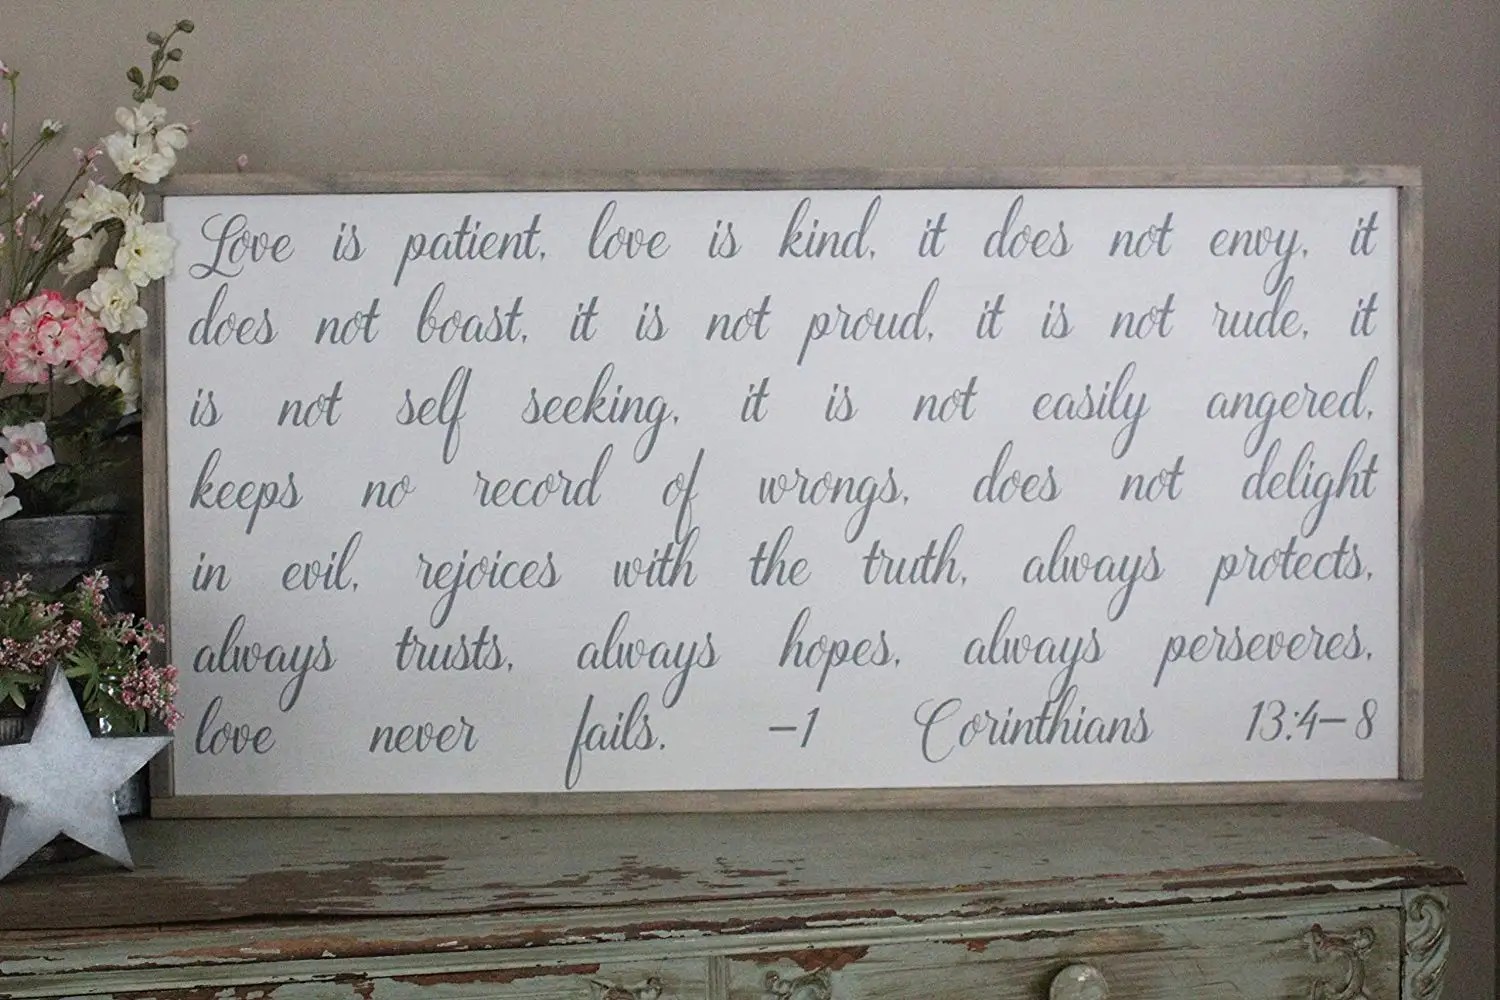 Love is patient, love is kind, it does not envy, it
does not boast, it is not proud, it is not rude, it
is not self seeking, it is not easily angered,
keeps no record of wrongs, does not delight
in evil, rejoices with the truth, always protects,
always trusts, always hopes, always perseveres,
love never fails. -1 Corinthians 13:4-8